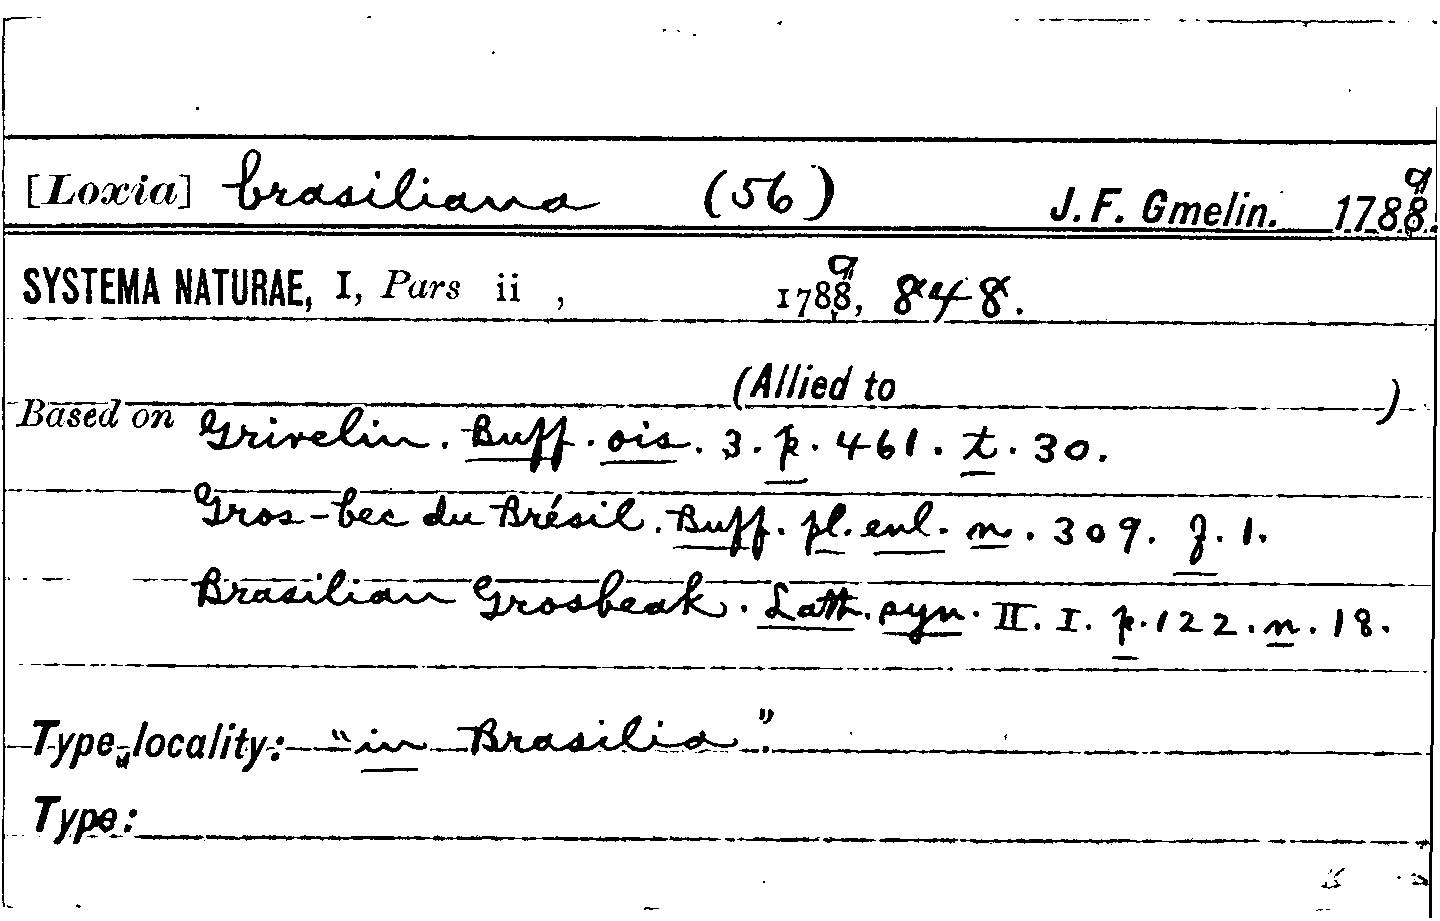 [Loxia] brasiliana (56) J. F. Gmelin. 1789.
SYSTEMA NATURAE, I, Pars ii , 1789, 848.
(Allied to )
Based on Grivelin. Buff. ois. 3. p. 461. t. 30.
Gros-bec du Brésil. Buff. pl. enl. n. 309. f. 1.
Brasilian Grosbeak. Lath. syn. II. I. p. 122. n. 18.
Type locality: "in Brasilia".
Type: